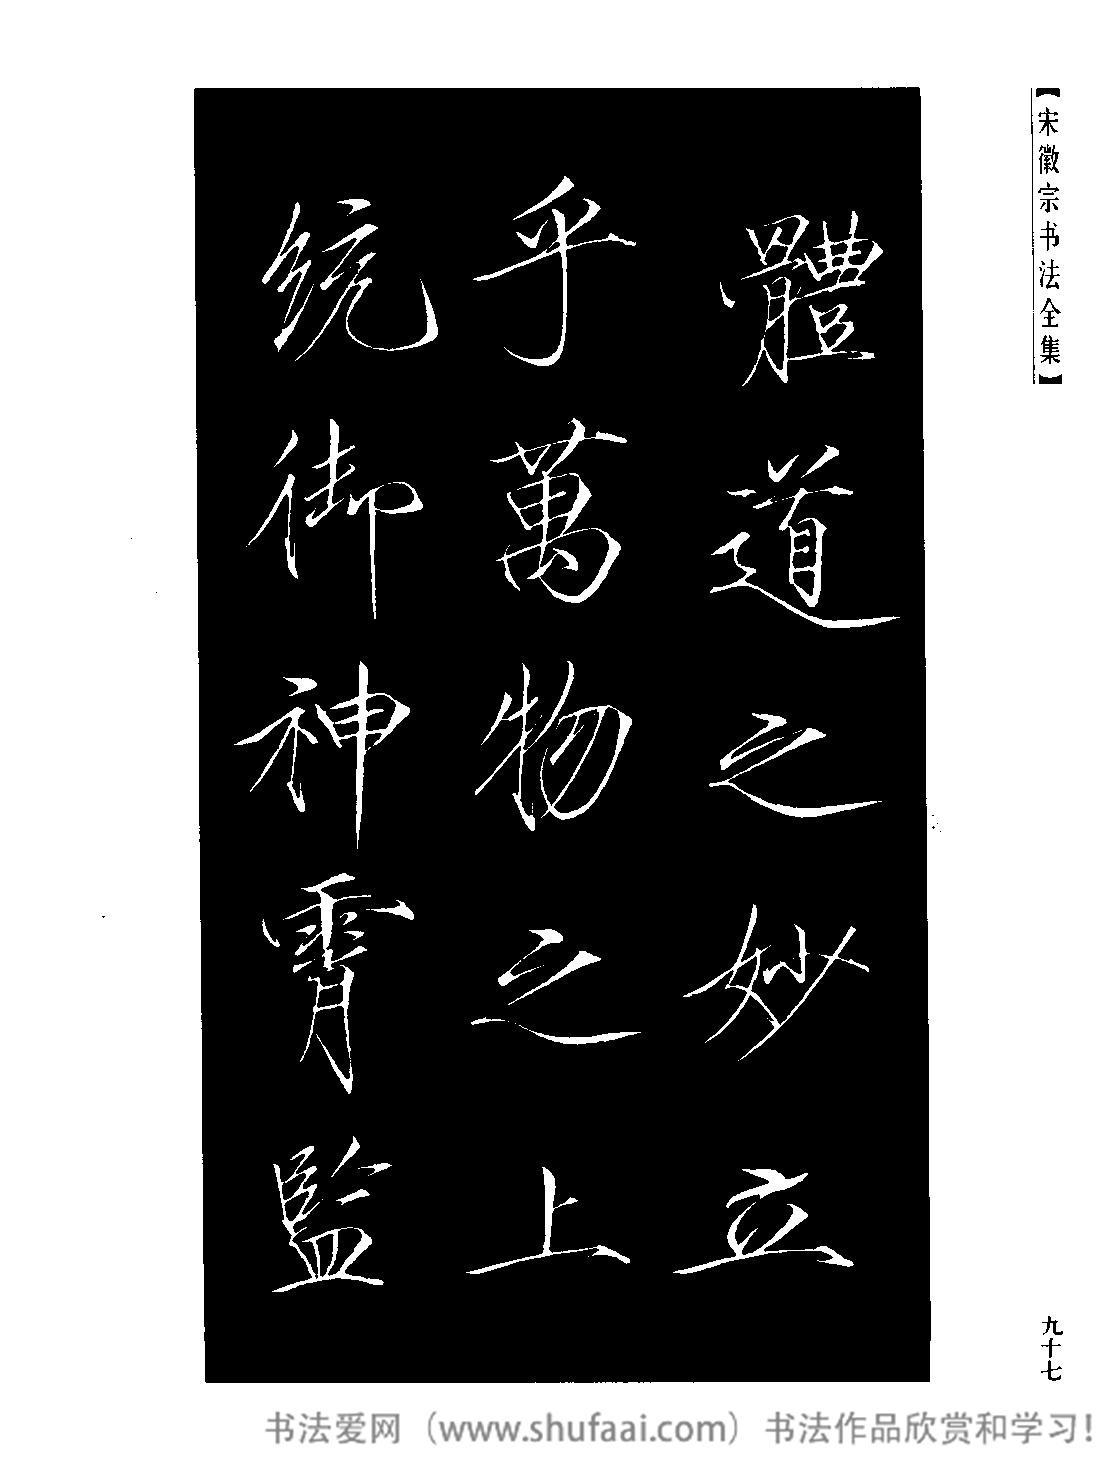 【宋徽宗书法全集】
體道之妙立
乎萬物之上
統御神霄監
九十七
书法爱网（www.shufaai.com）书法作品欣赏和学习！